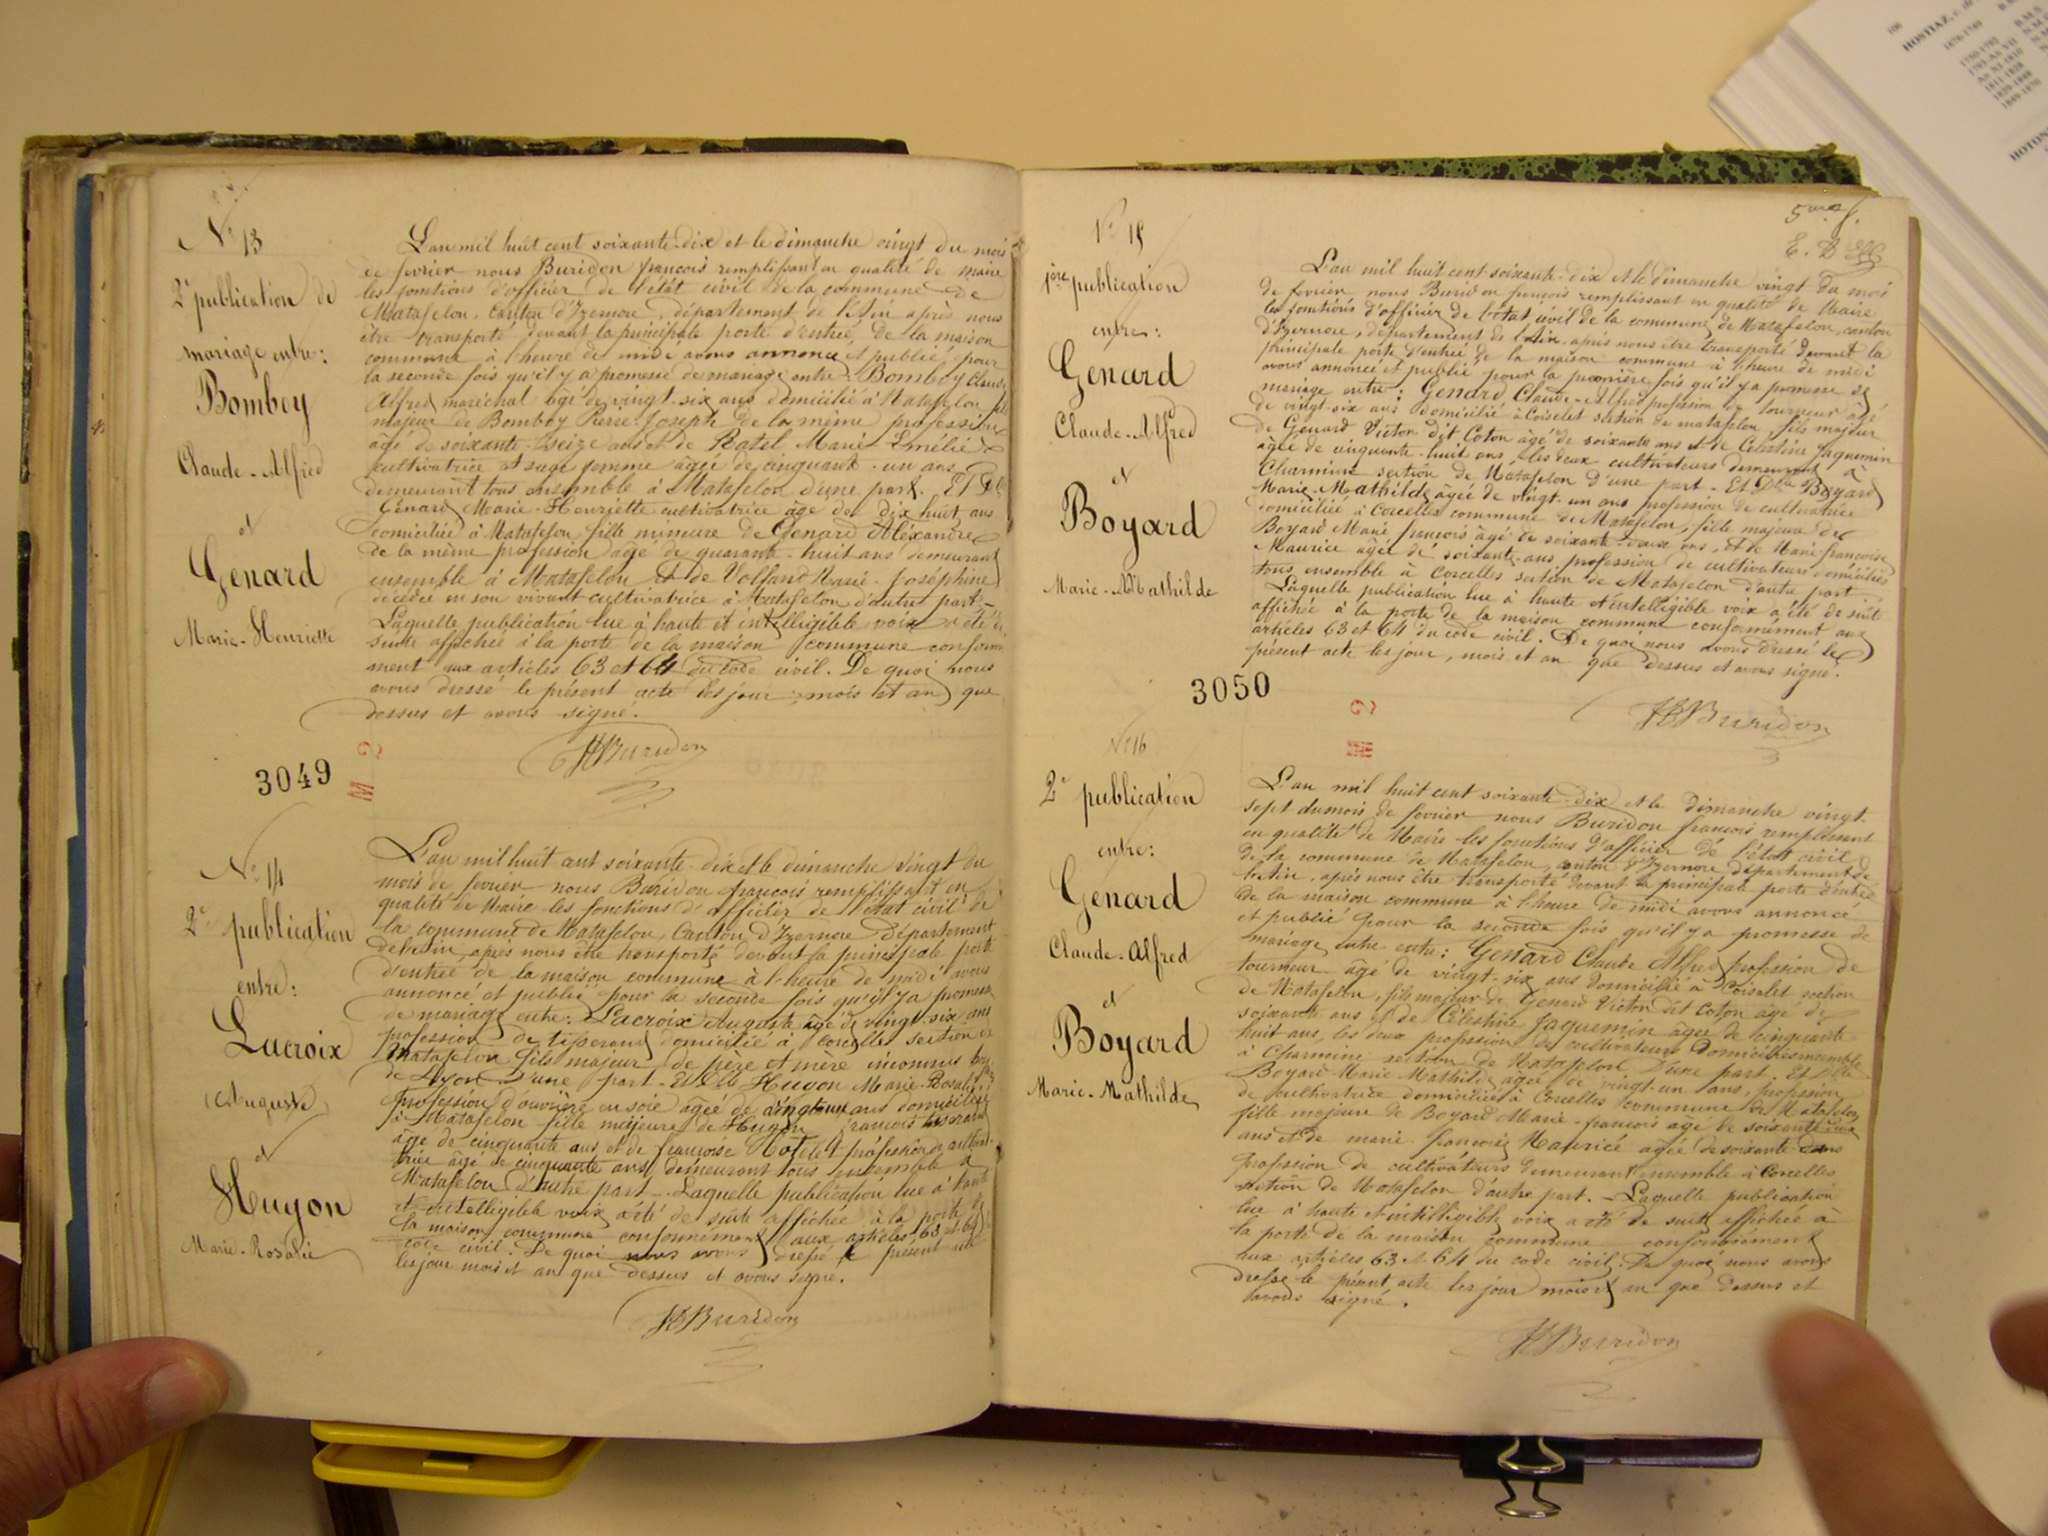 N° 13
2e publication de
mariage entre:
Bomboy
Claude-Alfred
et
Genard
Marie-Henriette
L'an mil huit cent soixante-dix et le dimanche vingt du mois
de fevrier nous Buridon françois remplissant en qualité de maire
les fonctions d'officier de l'état civil de la commune de
Matafelon, Canton d'Izernore, département de l'Ain après nous
être transporté devant la principale porte d'entrée De la maison
commune à l'heure de midi avons annoncé et publié pour
la seconde fois qu'il y a promesse de mariage entre Bomboy Claude
Alfred maréchal agé de vingt-six ans domicilié à Matafelon, fils
majeur de Bomboy Pierre-Joseph de la même profession
âgé de soixante-seize ans et de Ratel Marie Emélie
cultivatrice et sage femme âgée de cinquante-un ans
demeurant tous ensemble à Matafelon d'une part. Et Dlle
Génard Marie-Henriette cultivatrice âgé de dix huit ans
domiciliée à Matafelon, fille mineure de Genard Aléxandre
de la même profession âgé de quarante-huit ans demeurant
ensemble à Matafelon et de Volfand Marie-Joséphine
décédée en son vivant cultivatrice à Matafelon d'autre part.
Laquelle publication lue à haute et intelligible voix a été de
suite affichée à la porte de la maison commune conformé
ment aux articles 63 et 64 du code civil. De quoi nous
avons dressé le présent acte les jour, mois et an que
dessus et avons signé.
Buridon
3049
M 2
N° 14
2e publication
entre:
Lacroix
Auguste
et
Hugon
Marie-Rosalie
L'an mil huit cent soixante-dix et le dimanche vingt du
mois de fevrier nous Buridon françois remplissant en
qualité de Maire les fonctions d'officier de l'état civil de
la commune de Matafelon, Canton d'Izernore Département
de l'ain, après nous être transporté devant la principale porte
d'entrée de la maison commune à l'heure de midi avons
annoncé et publié pour la seconde fois qu'il y a promesse
de mariage entre: Lacroix Auguste âgé de vingt-six ans
profession de tisserand domicilié à Corcelles section de
Matafelon fils majeur de père et mère inconnus
de Lyon d'une part. Et Dlle Hugon Marie-Rosalie
profession d'ouvrière en soie âgée de vingt-un ans domiciliée
à Matafelon fille majeure de Hugon françois tisserand
âgé de cinquante ans et de françoise profession de cultiva-
trice âgé de cinquante ans demeurant tous ensemble à
Matafelon d'autre part. Laquelle publication lue à haute
et intelligible voix a été de suite affichée à la porte de
la maison commune conformément aux articles 63 et 64 du
code civil. De quoi nous avons dressé le présent acte
les jour mois et an que dessus et avons signé.
Buridon
E. D
N° 15
1ère publication
entre:
Genard
Claude-Alfred
et
Boyard
Marie-Mathilde
L'an mil huit cent soixante-dix et le dimanche vingt du mois
de fevrier nous Buridon françois remplissant en qualité de Maire
les fonctions d'officier de l'état civil de la commune de Matafelon, canton
d'Izernore, département de l'ain, après nous être transporté devant la
principale porte d'entrée de la maison commune à l'heure de midi
avons annoncé et publié pour la première fois qu'il y a promesse de
mariage entre: Genard Claude-Alfred profession de tourneur agé
de vingt-six ans domicilié à Coiselet section de matafelon, fils majeur
de Génard Victor dit Coton âgé de soixante ans et de Celestine Jaquemin
âgée de cinquante-huit ans, les deux cultivateurs demeurant à
Charmine section de Matafelon d'une part. Et Dlle Boyard
Marie-Mathilde âgée de vingt-un ans profession de cultivatrice
domiciliée à Corcelles commune de Matafelon, fille majeure de
Boyard Marie françois âgé de soixante-deux ans, et de Marie françoise
Maurice âgée de soixante ans profession de cultivateurs domiciliés
tous ensemble à Corcelles section de Matafelon d'autre part.
Laquelle publication lue à haute et intelligible voix a été de suite
affichée à la porte de la maison commune conformément aux
articles 63 et 64 du code civil. De quoi nous avons dressé le
présent acte les jour, mois et an que dessus et avons signé.
Buridon
3050
M 2
N° 16
2e publication
entre:
Genard
Claude-Alfred
et
Boyard
Marie-Mathilde
L'an mil huit cent soixante-dix et le dimanche vingt-
sept du mois de fevrier nous Buridon françois remplissant
en qualité de Maire les fonctions d'officier de l'état civil
de la commune de Matafelon, canton d'Izernore, département de
l'Ain, après nous être transporté devant la principale porte d'entrée
de la maison commune à l'heure de midi avons annoncé
et publié pour la seconde fois qu'il y a promesse de
mariage entre entre: Genard Claude Alfred profession de
tourneur âgé de vingt-six ans domicilié à Coiselet section
de Matafelon, fils majeur de Genard Victor dit Coton agé de
soixante ans et de Célestine Jaquemin agée de cinquante
huit ans, les deux profession de cultivateurs domiciliés ensemble
à Charmine section de Matafelon d'une part. Et Dlle
Boyard Marie-Mathilde agée de vingt-un ans, profession
de cultivatrice domiciliée à Corcelles commune de Matafelon
fille majeure de Boyard Marie-françois agé de soixante deux
ans et de marie françoise Maurice agée de soixante ans
profession de cultivateurs demeurant ensemble à Corcelles
section de Matafelon d'autre part. Laquelle publication
lue à haute et intelligible voix a été de suite affichée à
la porte de la maison commune conformément
aux articles 63 et 64 du code civil. De quoi nous avons
dressé le présent acte les jour mois et an que dessus et
avons signé.
Buridon
106
HOSTIAZ,